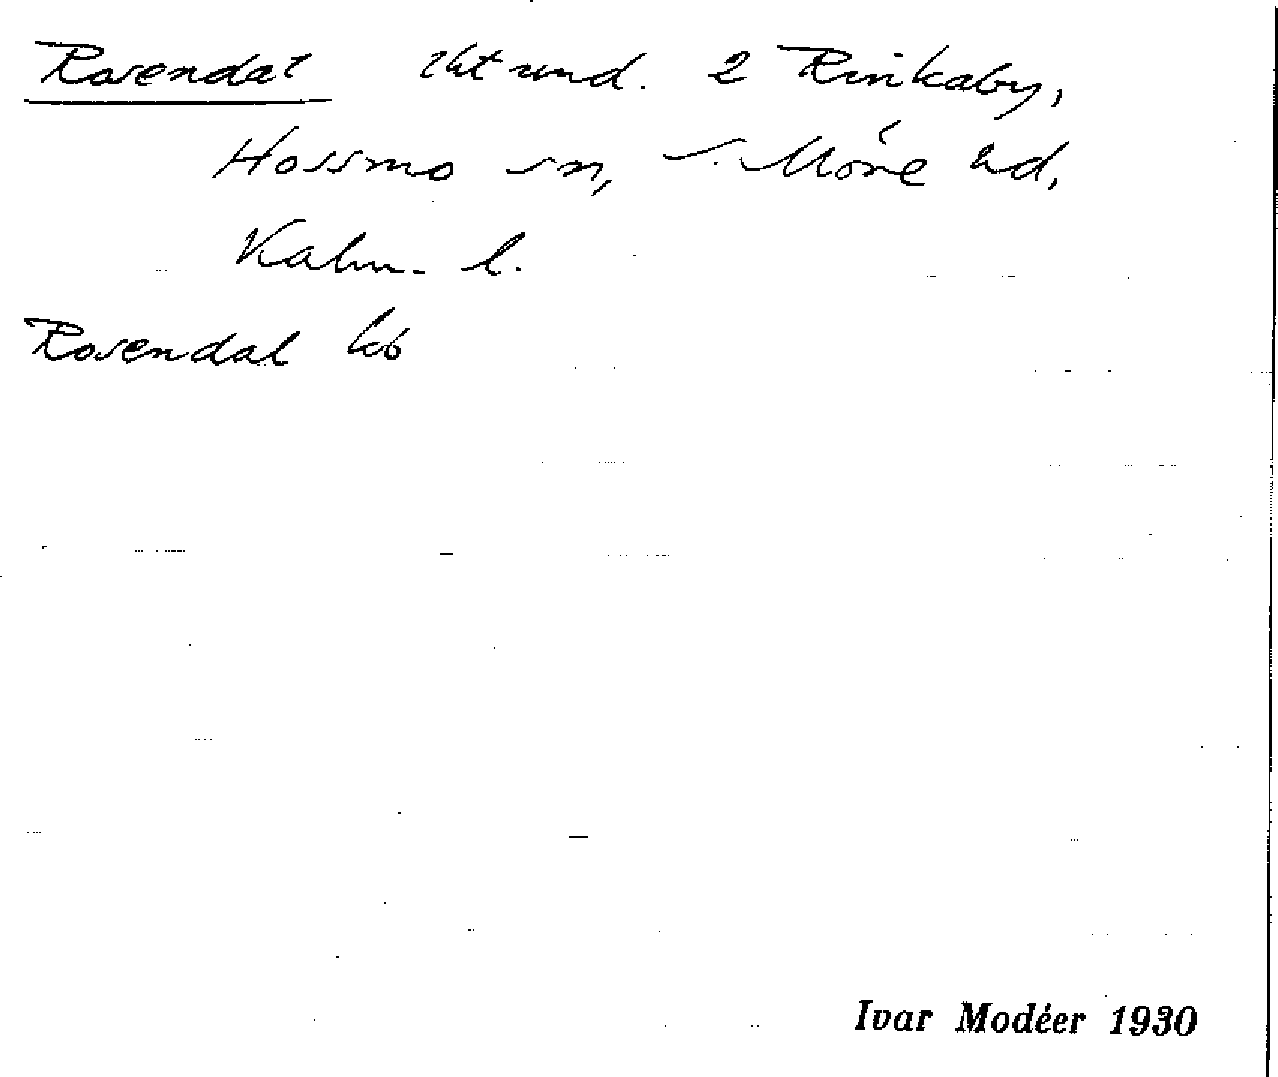 Rosendal lht und. 2 Rinkaby,
Hossmo sn, S. Möre hd,
Kalm. l.
Rosendal kb
Ivar Modéer 1930